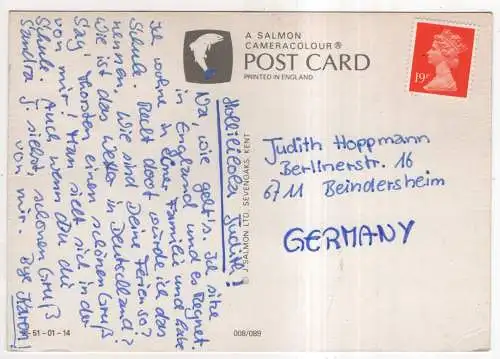 A SALMON
CAMERACOLOUR®
POST CARD
PRINTED IN ENGLAND
19
Judith Hoppmann
Berlinerstr. 16
6711 Beindersheim
GERMANY
Judith!
Na, wie geht's. Ich sitze
in England und es Regnet.
Ich wohne in einer Familie und habe
Schule. doof würde ich das
nennen. Wie sind Deine Ferien so?
Wie ist das Wetter in Deutschland?
Sag' Thorsten einen schönen Gruß
von mir! Man sieht sich in der
Schule. Auch wenn Du die
Sandra J. siehst, schönen Gruß
von mir. Bye Karen!
© J SALMON LTD. SEVENOAKS, KENT
51-01-14
008/089